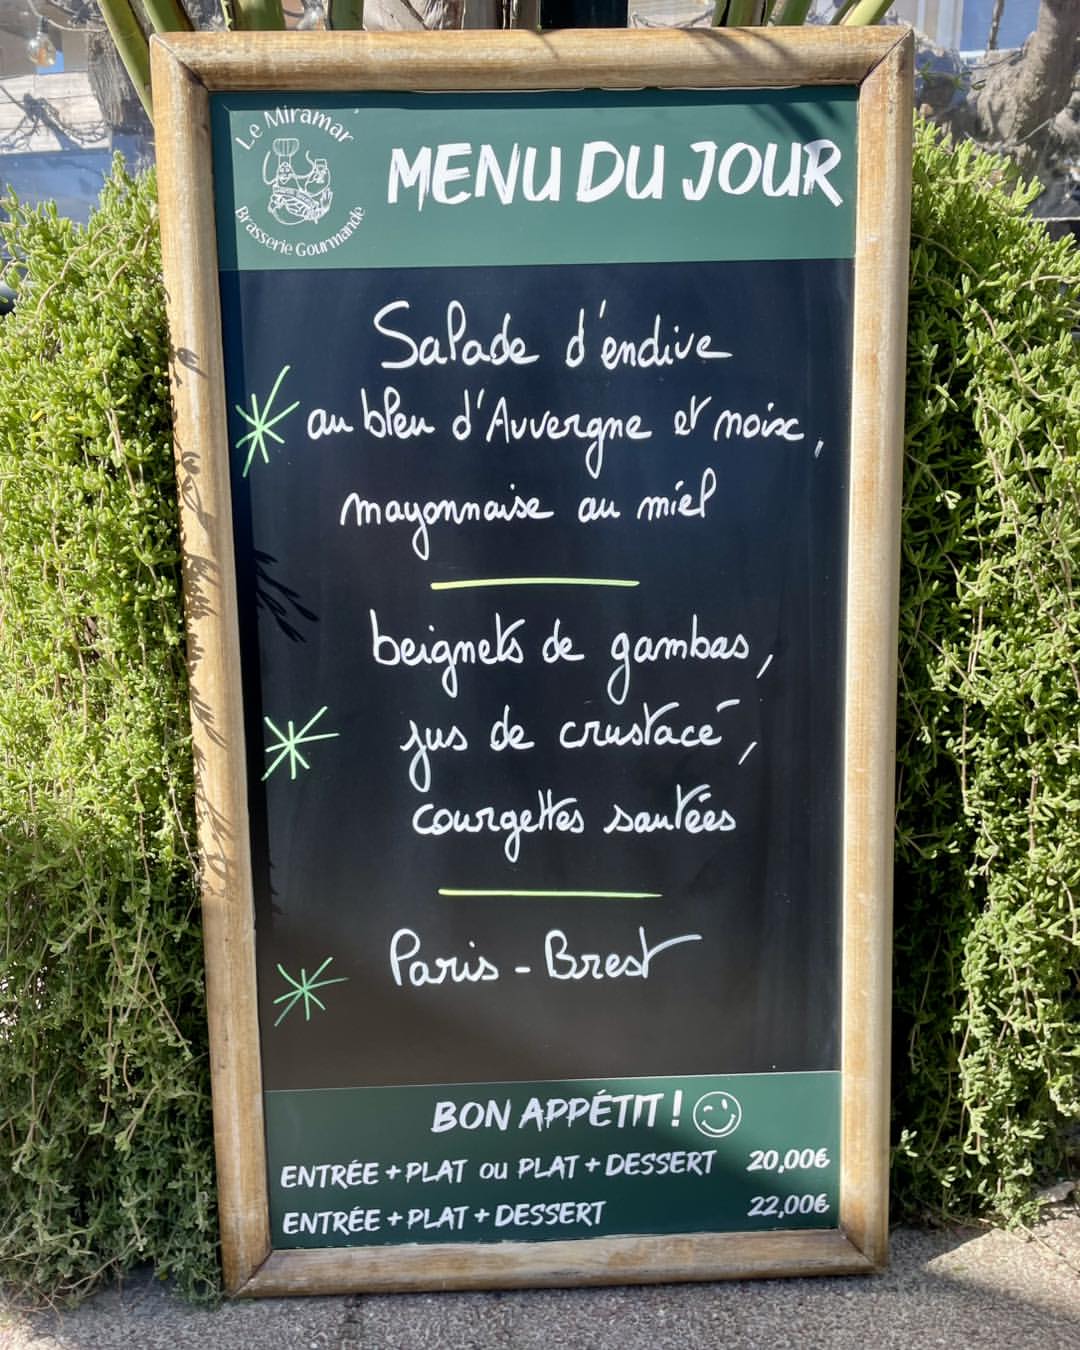 Le Miramar
Brasserie Gourmande
MENU DU JOUR
Salade d'endive
au bleu d'Auvergne et noix,
mayonnaise au miel
beignets de gambas,
jus de crustacé,
courgettes sautées
Paris-Brest
BON APPÉTIT !
ENTRÉE + PLAT OU PLAT + DESSERT 20,00€
ENTRÉE + PLAT + DESSERT 22,00€